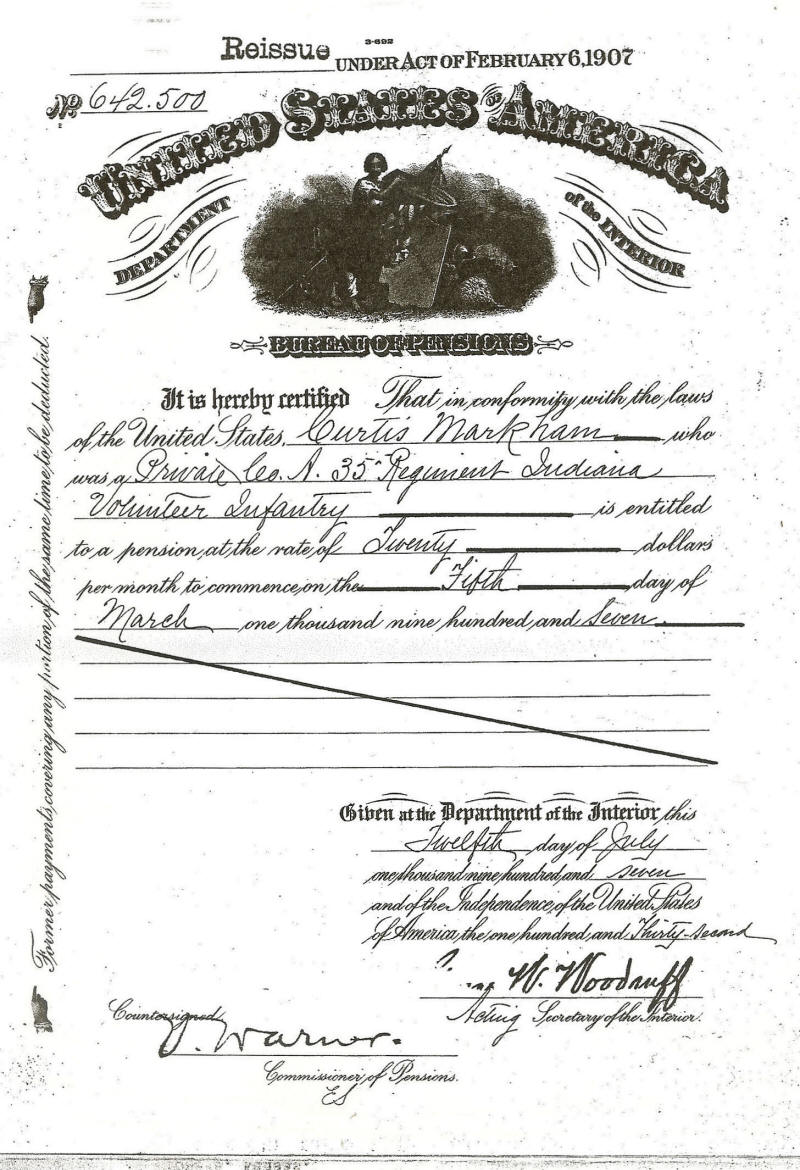 3-692
Reissue UNDER ACT OF FEBRUARY 6, 1907
No 642.500
UNITED STATES OF AMERICA
DEPARTMENT of the INTERIOR
BUREAU OF PENSIONS
It is hereby certified That in conformity with the laws
of the United States, Curtis Markham who
was a Private Co. A. 35" Regiment Indiana
Volunteer Infantry is entitled
to a pension at the rate of Twenty dollars
per month to commence on the Fifth day of
March one thousand nine hundred and seven
Former payments covering any portion of the same time to be deducted.
Given at the Department of the Interior this
Twelfth day of July
one thousand nine hundred and seven
and of the Independence of the United States
of America the one hundred and Thirty-second
W. Woodruff
Acting Secretary of the Interior.
Countersigned
V. Warner.
Commissioner of Pensions.